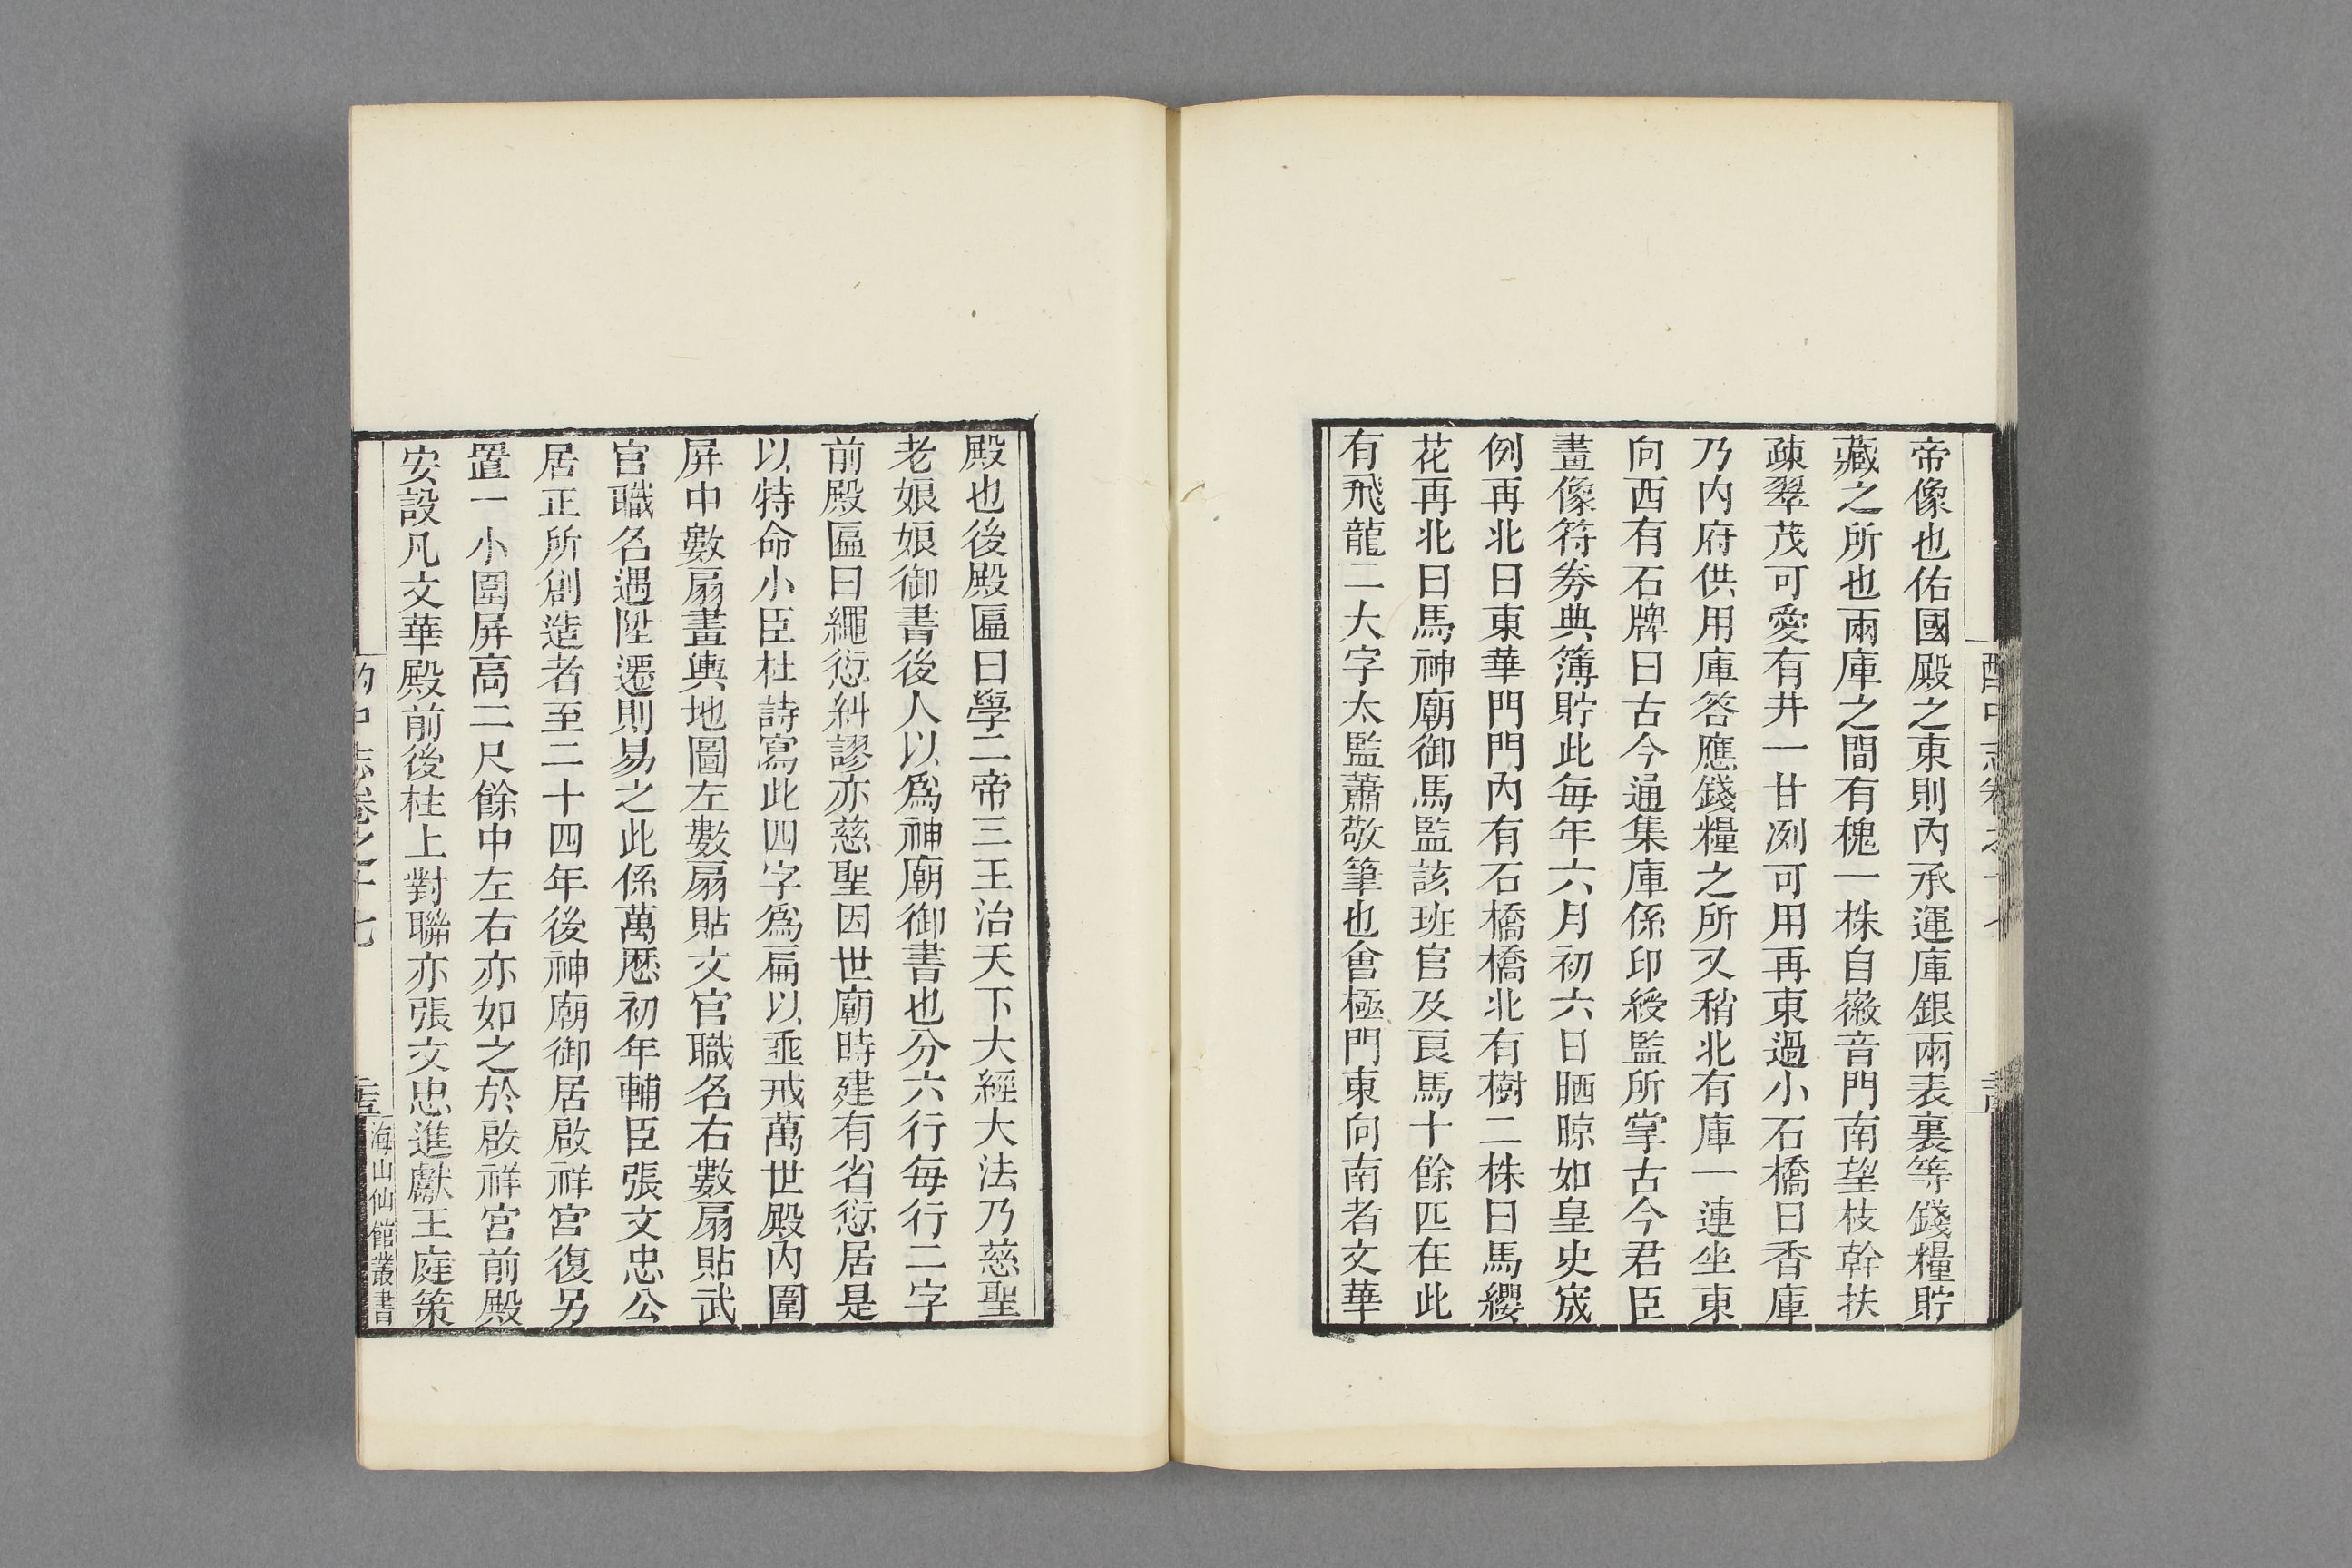 帝像也佑國殿之東則內承運庫銀兩表裏等錢糧貯
藏之所也兩庫之間有槐一株自徽音門南望枝幹扶
疎翠茂可愛有井一甘洌可用再東過小石橋曰香庫
乃內府供用庫答應錢糧之所又稍北有庫一連坐東
向西有石牌曰古今通集庫係印綬監所掌古今君臣
畫像符券典簿貯此每年六月初六日晒晾如皇史宬
例再北曰東華門門內有石橋橋北有樹二株曰馬纓
花再北曰馬神廟御馬監該班官及良馬十餘匹在此
有飛龍二大字太監蕭敬筆也會極門東向南者文華
殿也後殿匾曰學二帝三王治天下大經大法乃慈聖
老娘娘御書後人以為神廟御書也分六行每行二字
前殿匾曰繩愆糾謬亦慈聖因世廟時建有省愆居是
以特命小臣杜詩寫此四字為扁以垂戒萬世殿內圍
屏中數扇畫輿地圖左數扇貼文官職名右數扇貼武
官職名遇陞遷則易之此係萬歷初年輔臣張文忠公
居正所創造者至二十四年後神廟御居啟祥宮復另
置一小圍屏高二尺餘中左右亦如之於啟祥宮前殿
安設凡文華殿前後柱上對聯亦張文忠進獻王庭策
酌中志卷之十七
海山仙館叢書